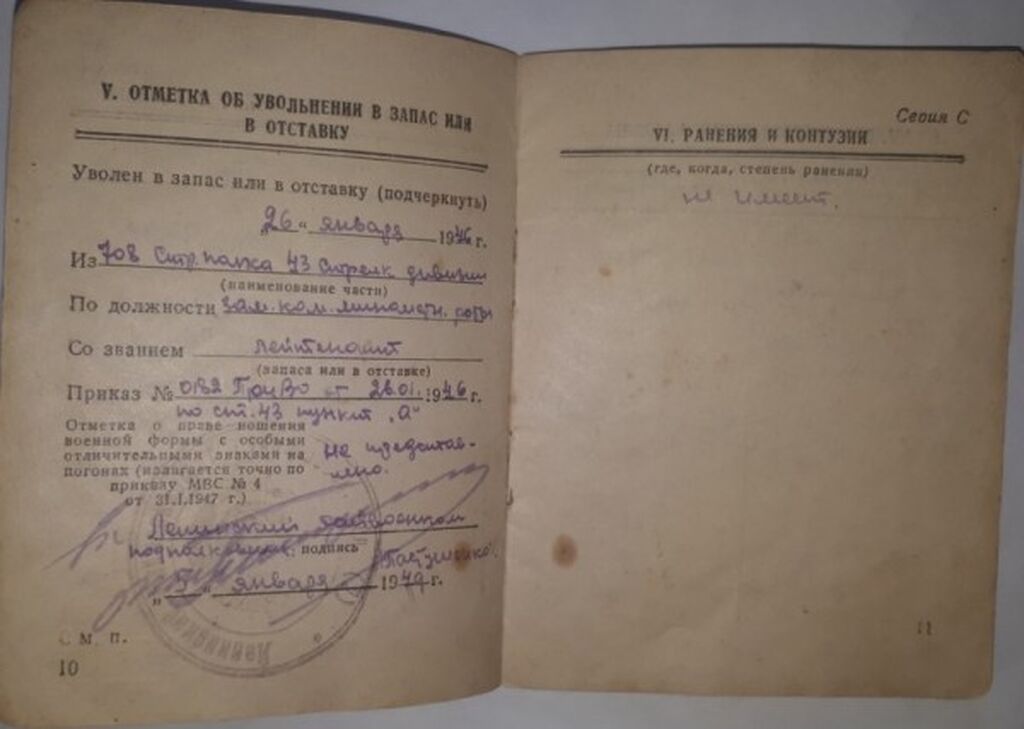 V. ОТМЕТКА ОБ УВОЛЬНЕНИИ В ЗАПАС ИЛИ
В ОТСТАВКУ
Уволен в запас или в отставку (подчеркнуть)
26 „ января 1946 г.
Из 708 Стр. полка 43 Стрелк дивизии
(наименование части)
По должности Зам. ком. миномётн. роты
Со званием лейтенант
(запаса или в отставке)
Приказ № 0182 ПриВо от 26.01.1946 г.
по ст. 43 пункт „а"
Отметка о праве ношения
военной формы с особыми
отличительными знаками на
погонах (излагается точно по
приказу МВС № 4
от 31.I.1947 г.)
не представлено.
Ленинский райвоенком
подполковник подпись /Пастушенко/
„ 5 " января 1949 г.
М. п.
10
Серия С
VI. РАНЕНИЯ И КОНТУЗИИ
(где, когда, степень ранения)
не имеет.
11